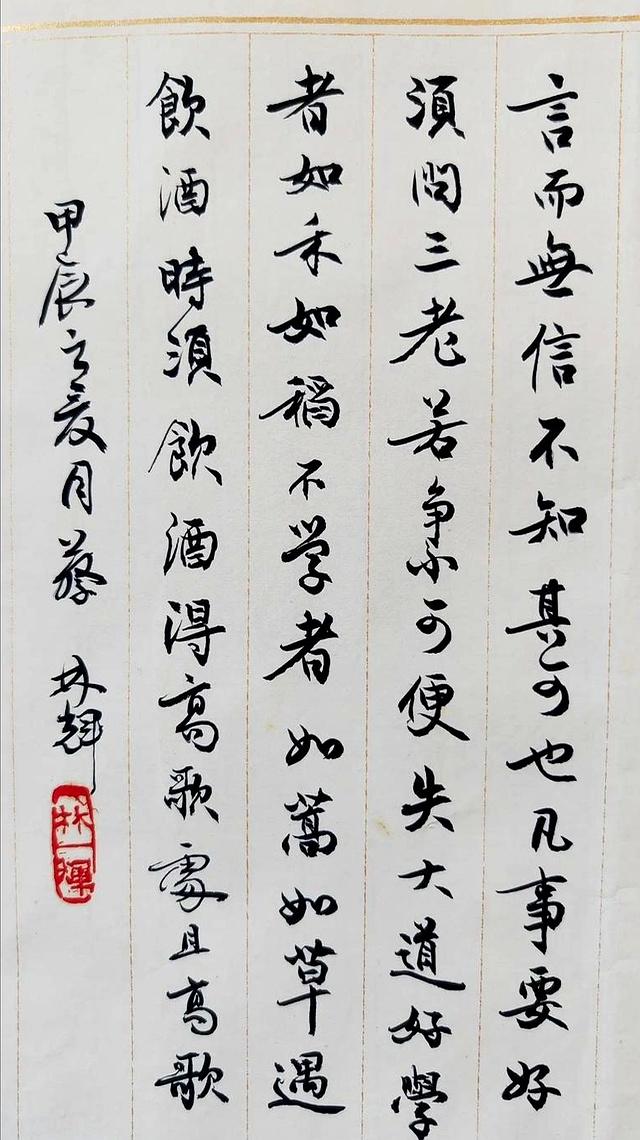 言而無信不知其可也凡事要好
須問三老若争小可便失大道好學
者如禾如稻不学者如蒿如草遇
飲酒時須飲酒得高歌處且高歌
甲辰之夏月蔡林輝